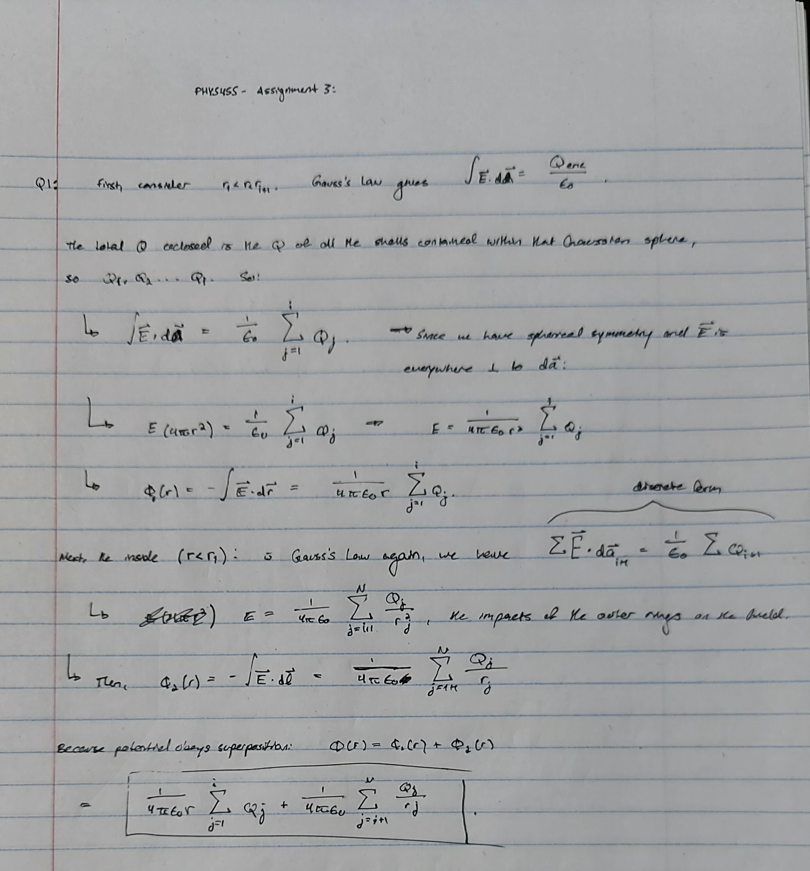 PHYS455 - Assignment 3:
Q1: First, consider r_i < r < r_{i+1}. Gauss's Law gives ∫E⃗·da⃗ = Q_enc/ε₀.
The total Q enclosed is the Q of all the shells contained within that Gaussian sphere,
so Q₁, Q₂ ... Q_i. So:
↳ ∫E⃗·da⃗ = 1/ε₀ Σ_{j=1}^{i} Q_j. → Since we have spherical symmetry and E⃗ is
everywhere ⊥ to da⃗:
↳ E(4πr²) = 1/ε₀ Σ_{j=1}^{i} Q_j → E = 1/(4πε₀r²) Σ_{j=1}^{i} Q_j
↳ Φ₁(r) = -∫E⃗·dr⃗ = 1/(4πε₀r) Σ_{j=1}^{i} Q_j.
discrete form
Next, the inside (r<r₁): Gauss's Law again, we have ΣE⃗·da⃗_{i+1} = 1/ε₀ ΣQ_{i+1}
↳ E = 1/(4πε₀) Σ_{j=i+1}^{N} Q_j/r_j², the impacts of the outer rings on the field.
↳ Then, Φ₂(r) = -∫E⃗·dl⃗ = 1/(4πε₀) Σ_{j=i+1}^{N} Q_j/r_j
Because potential obeys superposition: Φ(r) = Φ₁(r) + Φ₂(r)
= 1/(4πε₀r) Σ_{j=1}^{i} Q_j + 1/(4πε₀) Σ_{j=i+1}^{N} Q_j/r_j.